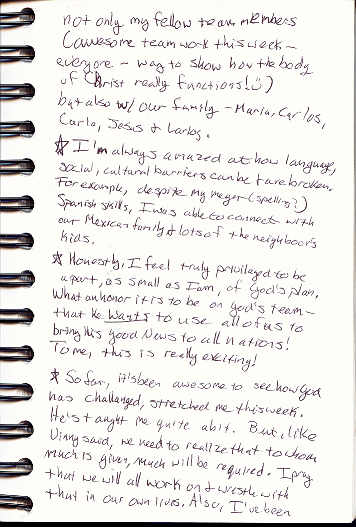 not only my fellow team members
(awesome team work this week -
everyone - way to show how the body
of Christ really functions! :))
but also w/ our family - Maria, Carlos,
Carla, Jesus & Carlos.
☆ I'm always amazed at how language,
social, cultural barriers can be & are broken.
For example, despite my meger (spelling?)
Spanish skills, I was able to connect with
our Mexican family & lots of the neighbor's
kids.
☆ Honestly, I feel truly privileged to be
a part, as small as I am, of God's plan.
What an honor it is to be on God's team -
that He wants to use all of us to
bring His good News to all nations!
To me, this is really exciting!
☆ So far, it's been awesome to see how God
has challanged, stretched me this week.
He's taught me quite abit. But, like
Vinny said, we need to realize that to whom
much is given, much will be required. I pray
that we will all work on & wrestle with
that in our own lives. Also, I've been